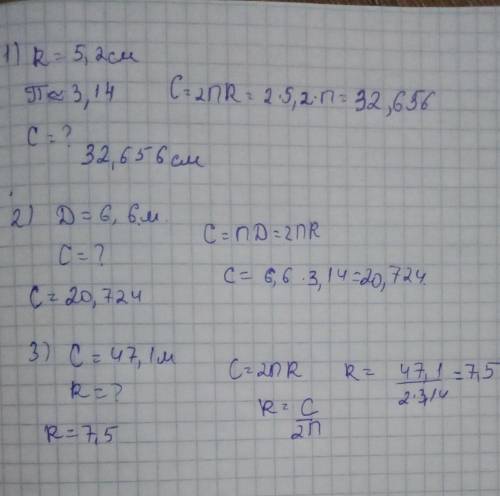 1) R = 5,2см
П ≈ 3,14
C = 2ПR = 2·5,2·П = 32,656
C = ?
32,656 см
2) D = 6,6м.
C = ПD = 2ПR
C = ?
C = 6,6 · 3,14 = 20,724.
C = 20,724
3) C = 47,1м
C = 2ПR R = 47,1/2·3,14 = 7,5
R = ?
R = C/2П
R = 7,5